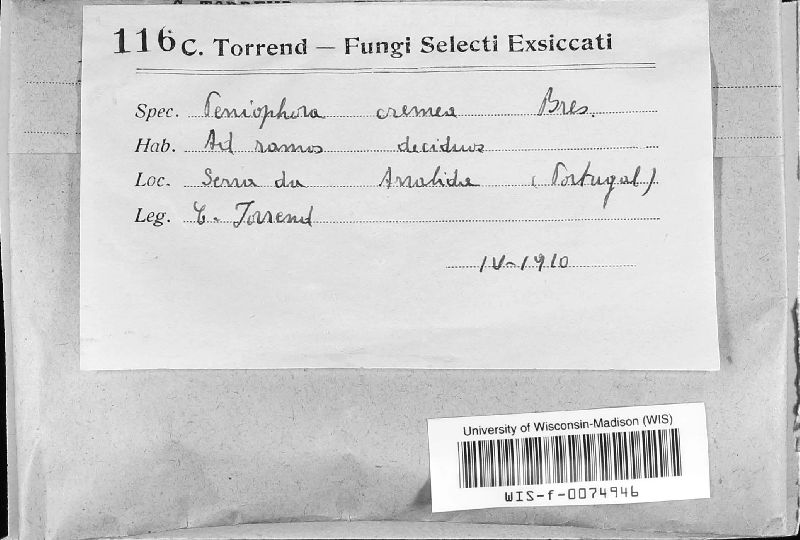 116 C. Torrend — Fungi Selecti Exsiccati
Spec. Peniophora cremea Bres.
Hab. Ad ramos deciduos
Loc. Serra da Arrabida (Portugal)
Leg. C. Torrend
IV-1910
University of Wisconsin-Madison (WIS)
WIS-f-0074946